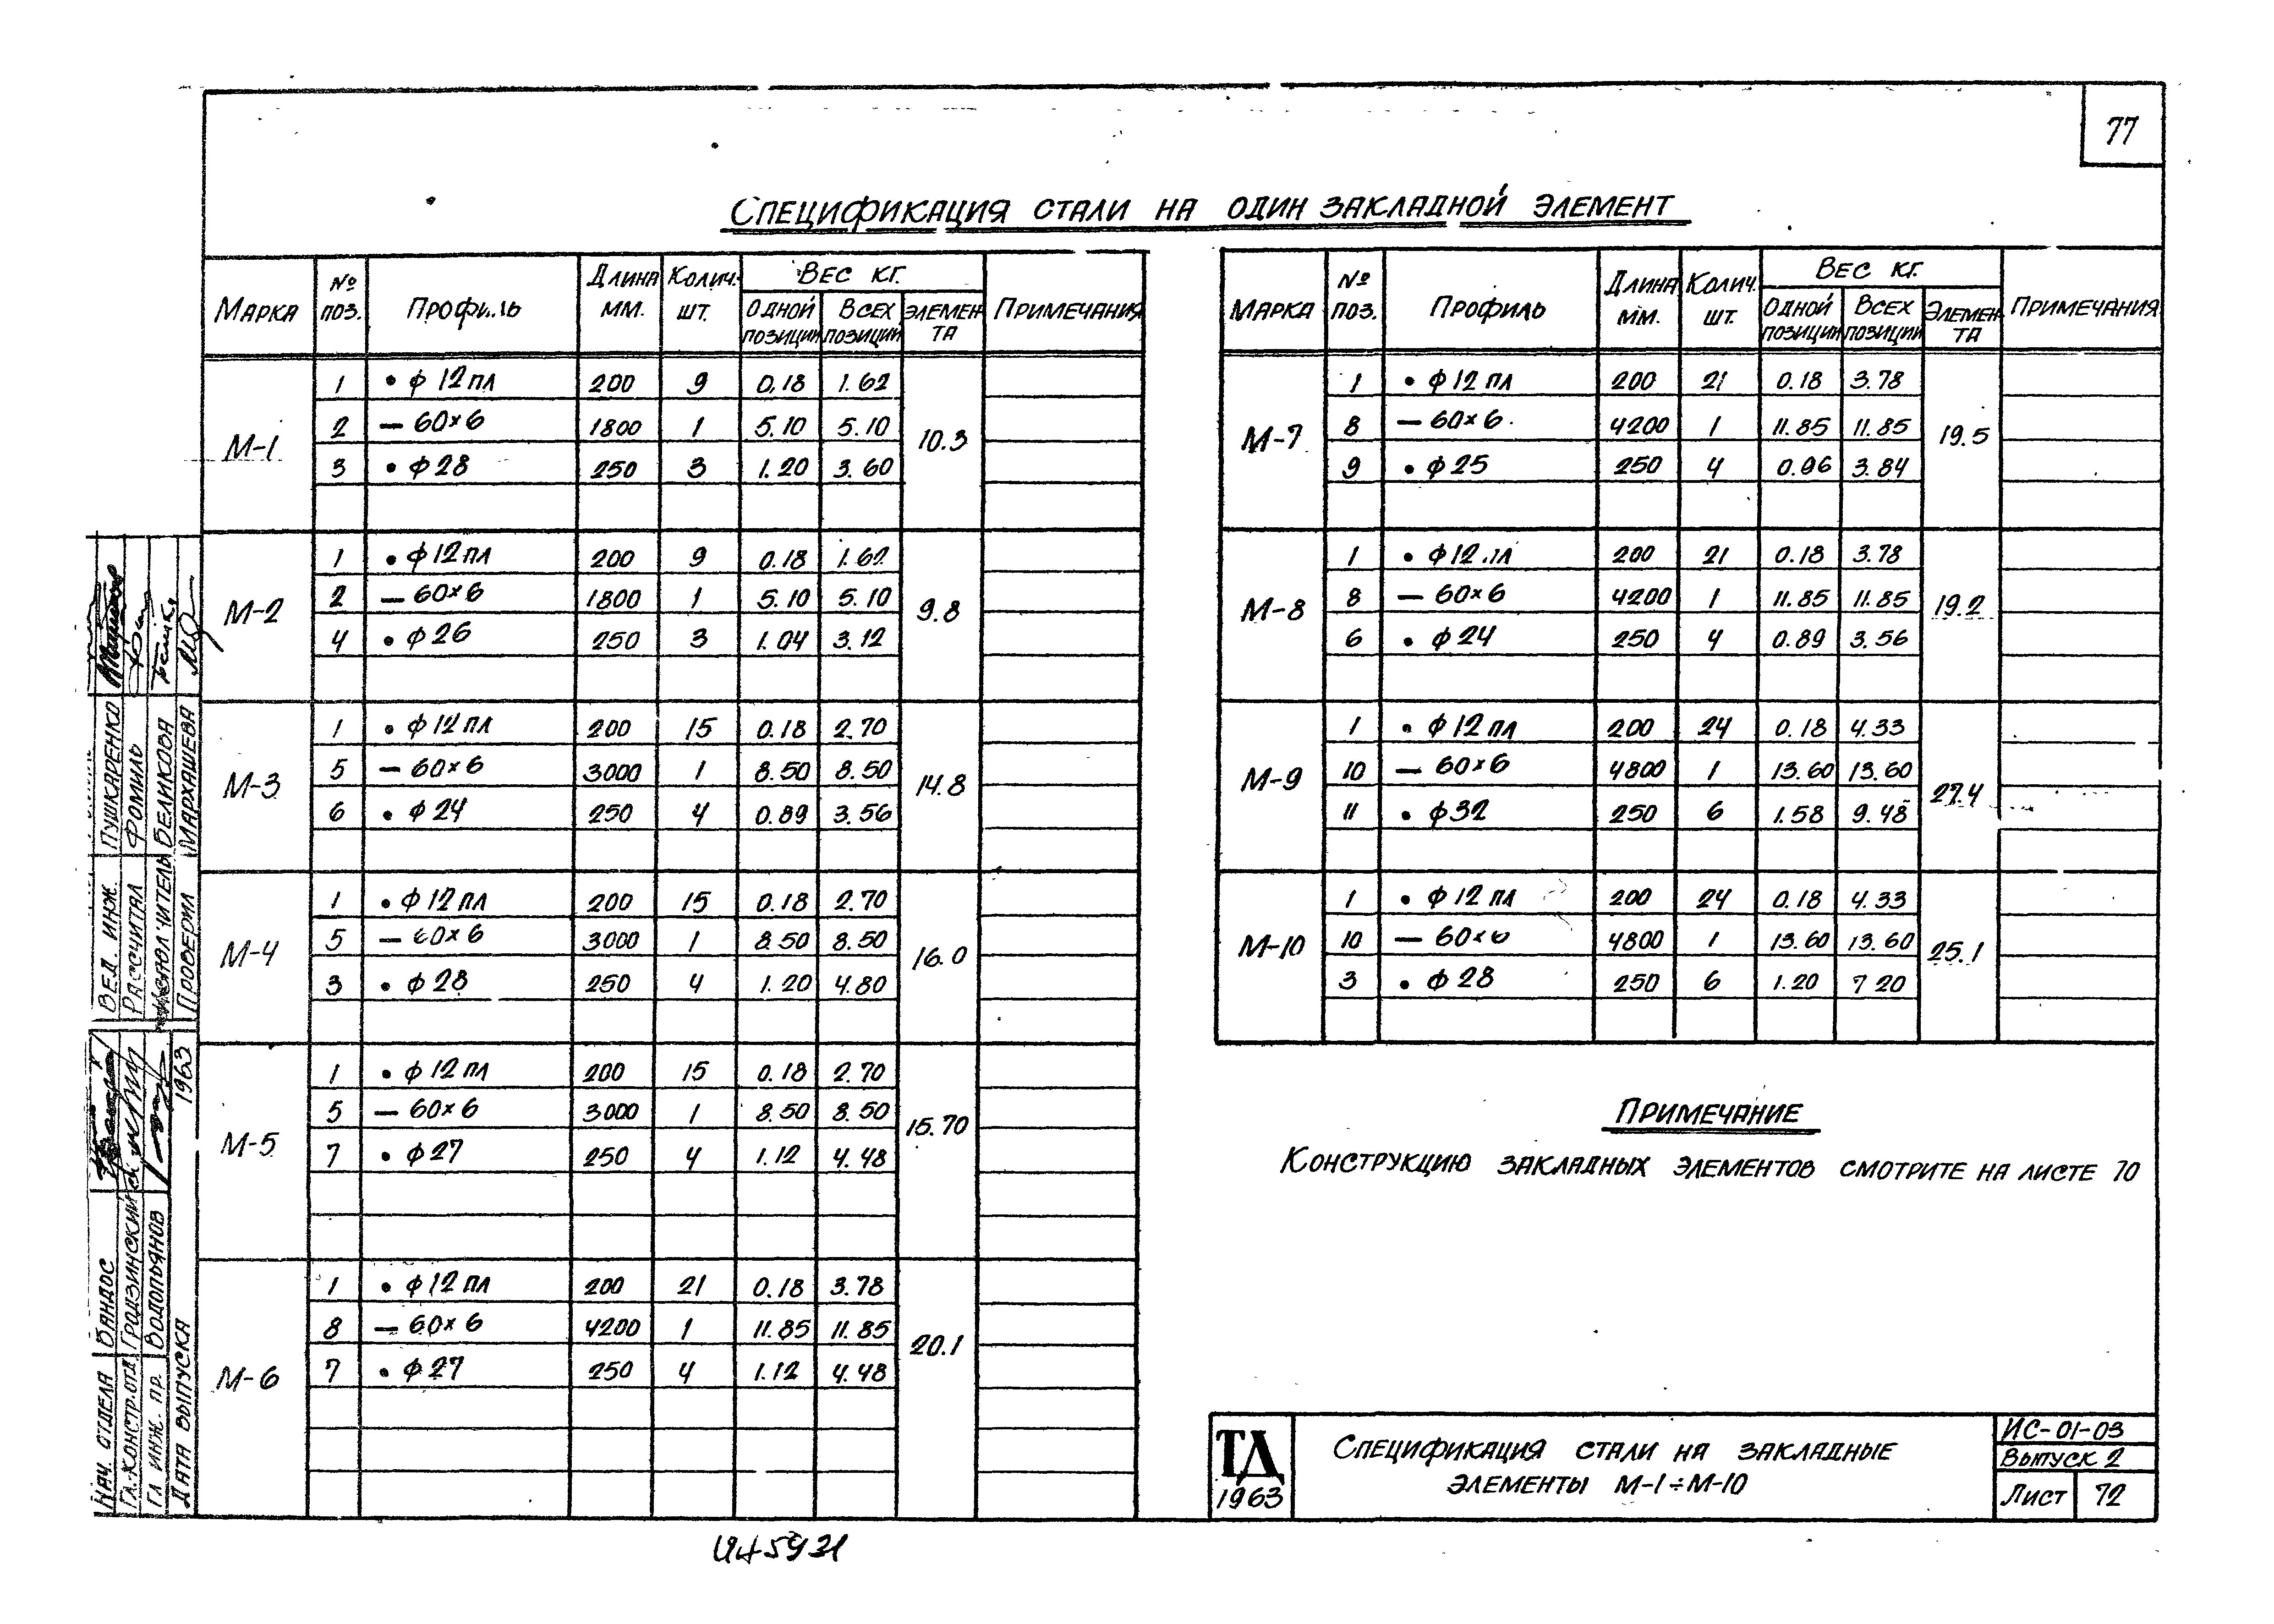 77
Спецификация стали на один закладной элемент
Марка № поз. Профиль Длина мм. Колич. шт. Вес кг. Одной позиции Всех позиции Элемента Примечания
М-1 10.3
1 • ф 12 пл 200 9 0,18 1.62
2 — 60×6 1800 1 5.10 5.10
3 • ф 28 250 3 1.20 3.60
М-2 9.8
1 • ф 12 пл 200 9 0.18 1.62
2 — 60×6 1800 1 5.10 5.10
4 • ф 26 250 3 1.04 3.12
М-3 14.8
1 • ф 12 пл 200 15 0.18 2.70
5 — 60×6 3000 1 8.50 8.50
6 • ф 24 250 4 0.89 3.56
М-4 16.0
1 • ф 12 пл 200 15 0.18 2.70
5 — 60×6 3000 1 8.50 8.50
3 • ф 28 250 4 1.20 4.80
М-5 15.70
1 • ф 12 пл 200 15 0.18 2.70
5 — 60×6 3000 1 8.50 8.50
7 • ф 27 250 4 1.12 4.48
М-6 20.1
1 • ф 12 пл 200 21 0.18 3.78
8 — 60×6 4200 1 11.85 11.85
7 • ф 27 250 4 1.12 4.48
Марка № поз. Профиль Длина мм. Колич. шт. Вес кг. Одной позиции Всех позиции Элемента Примечания
М-7 19.5
1 • ф 12 пл 200 21 0.18 3.78
8 — 60×6 4200 1 11.85 11.85
9 • ф 25 250 4 0.96 3.84
М-8 19.2
1 • ф 12 пл 200 21 0.18 3.78
8 — 60×6 4200 1 11.85 11.85
6 • ф 24 250 4 0.89 3.56
М-9 27.4
1 • ф 12 пл 200 24 0.18 4.33
10 — 60×6 4800 1 13.60 13.60
11 • ф 32 250 6 1.58 9.48
М-10 25.1
1 • ф 12 пл 200 24 0.18 4.33
10 — 60×6 4800 1 13.60 13.60
3 • ф 28 250 6 1.20 7 20
Примечание
Конструкцию закладных элементов смотрите на листе 70
ТД
1963
Спецификация стали на закладные
элементы М-1÷М-10
ИС-01-03
Выпуск 2
Лист 72
Вед. инж. Пушкаренко
Рассчитал Фомиль
Исполнитель Великова
Проверил Мархашева
Нач. отдела Вандос
Гл. констр. отд. Гродзинский
Гл. инж. пр. Водопьянов
Дата выпуска 1963